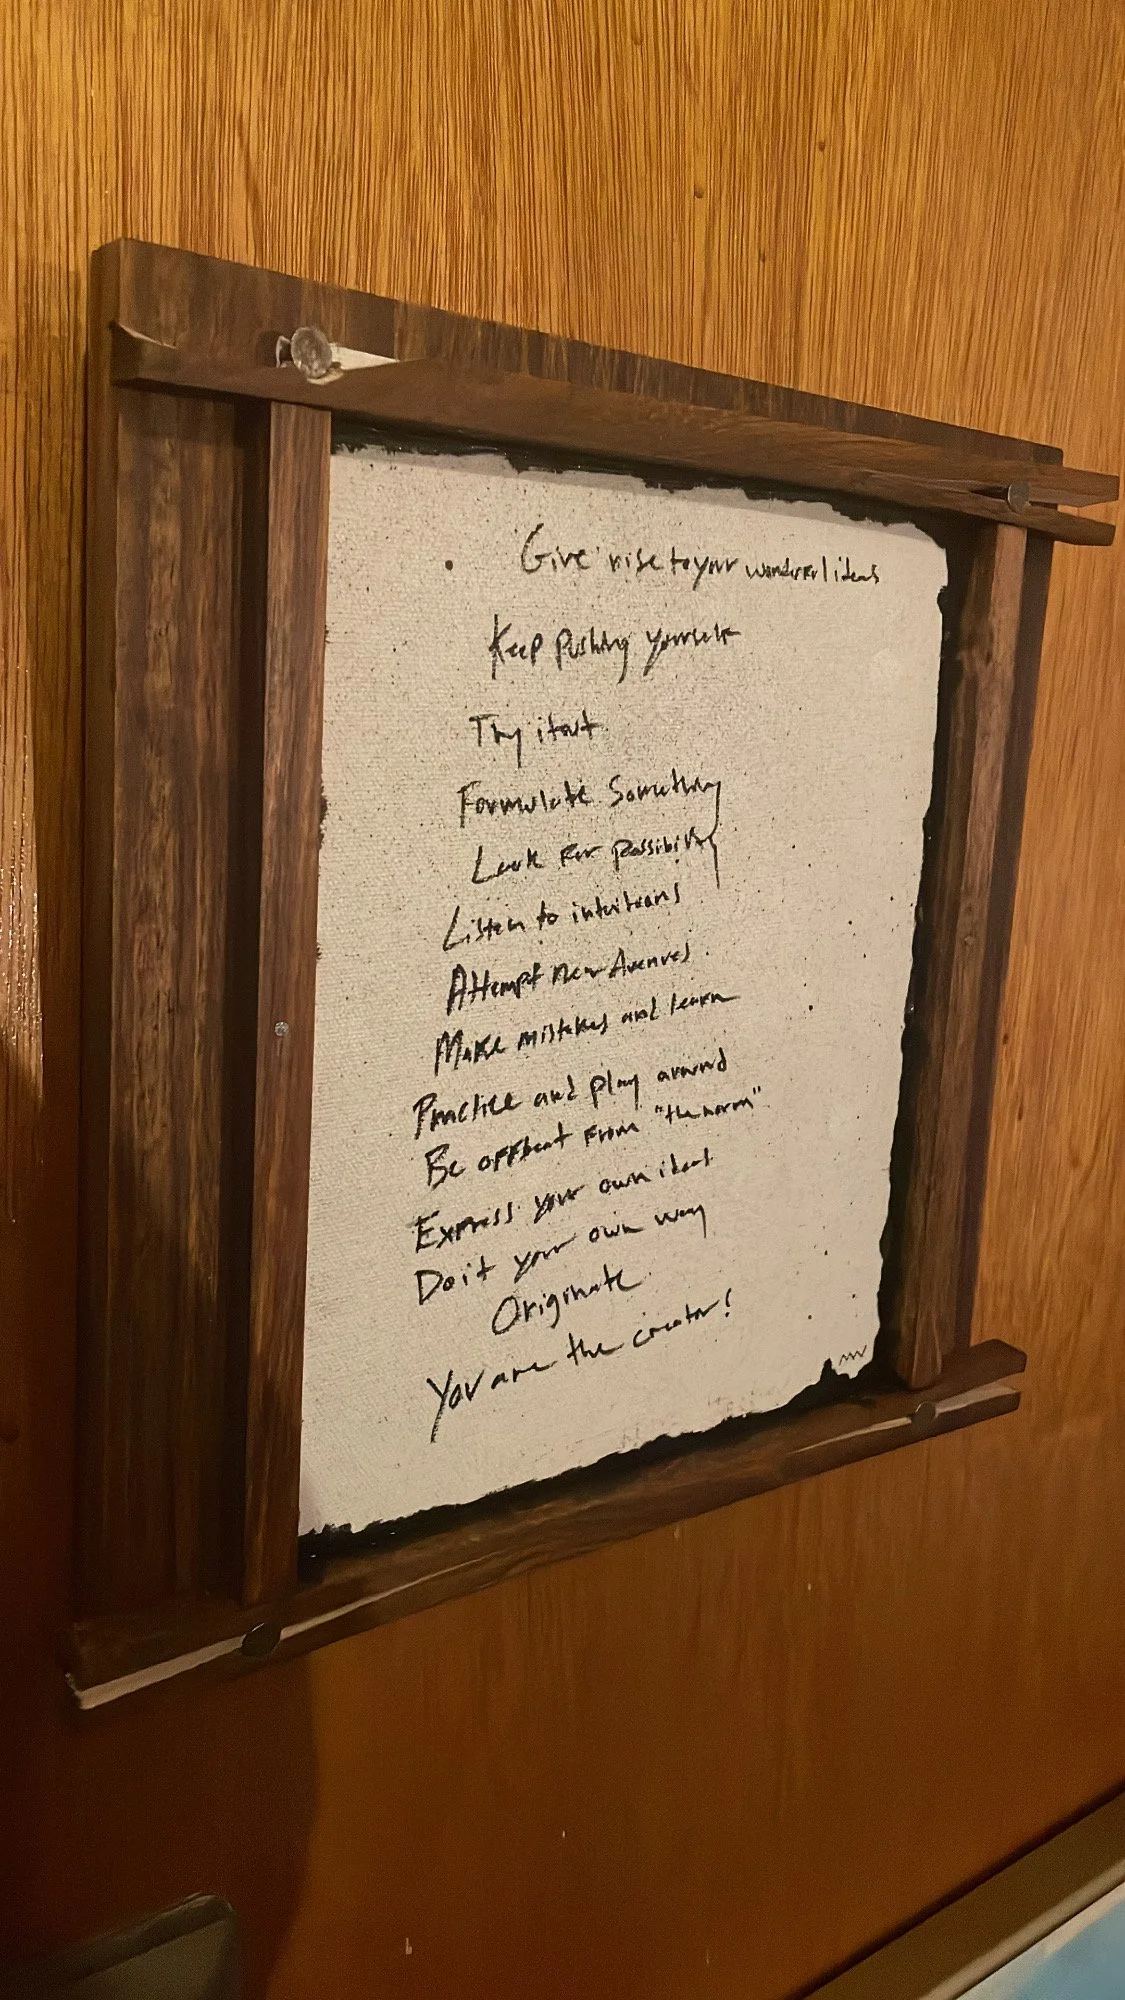 Give rise to your wonderful ideas
Keep pushing yourself
Try it out
Formulate Something
Look for possibility
Listen to intuitions
Attempt new Avenues
Make mistakes and learn
Practice and play around
Be offbeat from "the norm"
Express your own ideas
Do it your own way
Originate
You are the creator!